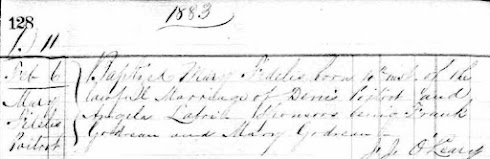 1883
128
D 11
Feb 6 Baptized Mary Fidelis born 10th inst. of the
Mary lawfull Marriage of Denis Poitrot and
Fidelis Angela Sponsors being Frank
Poitrot Godreau and Mary Godreau
J. J. O'Leary